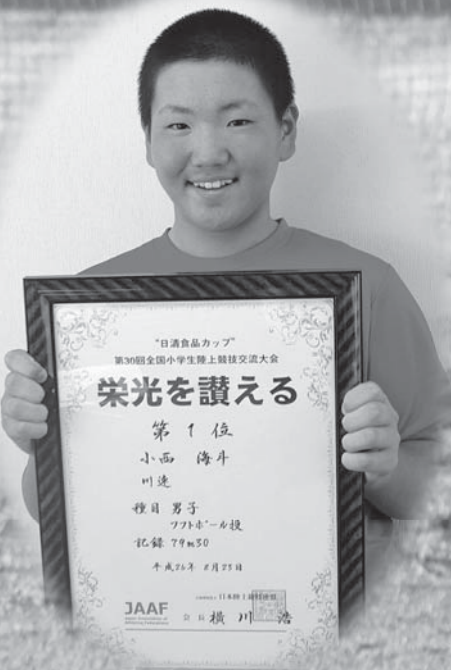 "日清食品カップ"
第30回全国小学生陸上競技交流大会
栄光を讃える
第 1 位
小西 海斗
川連
種目 男子
ソフトボール投
記録 79m30
平成26年 8月23日
JAAF
会長 横川 浩